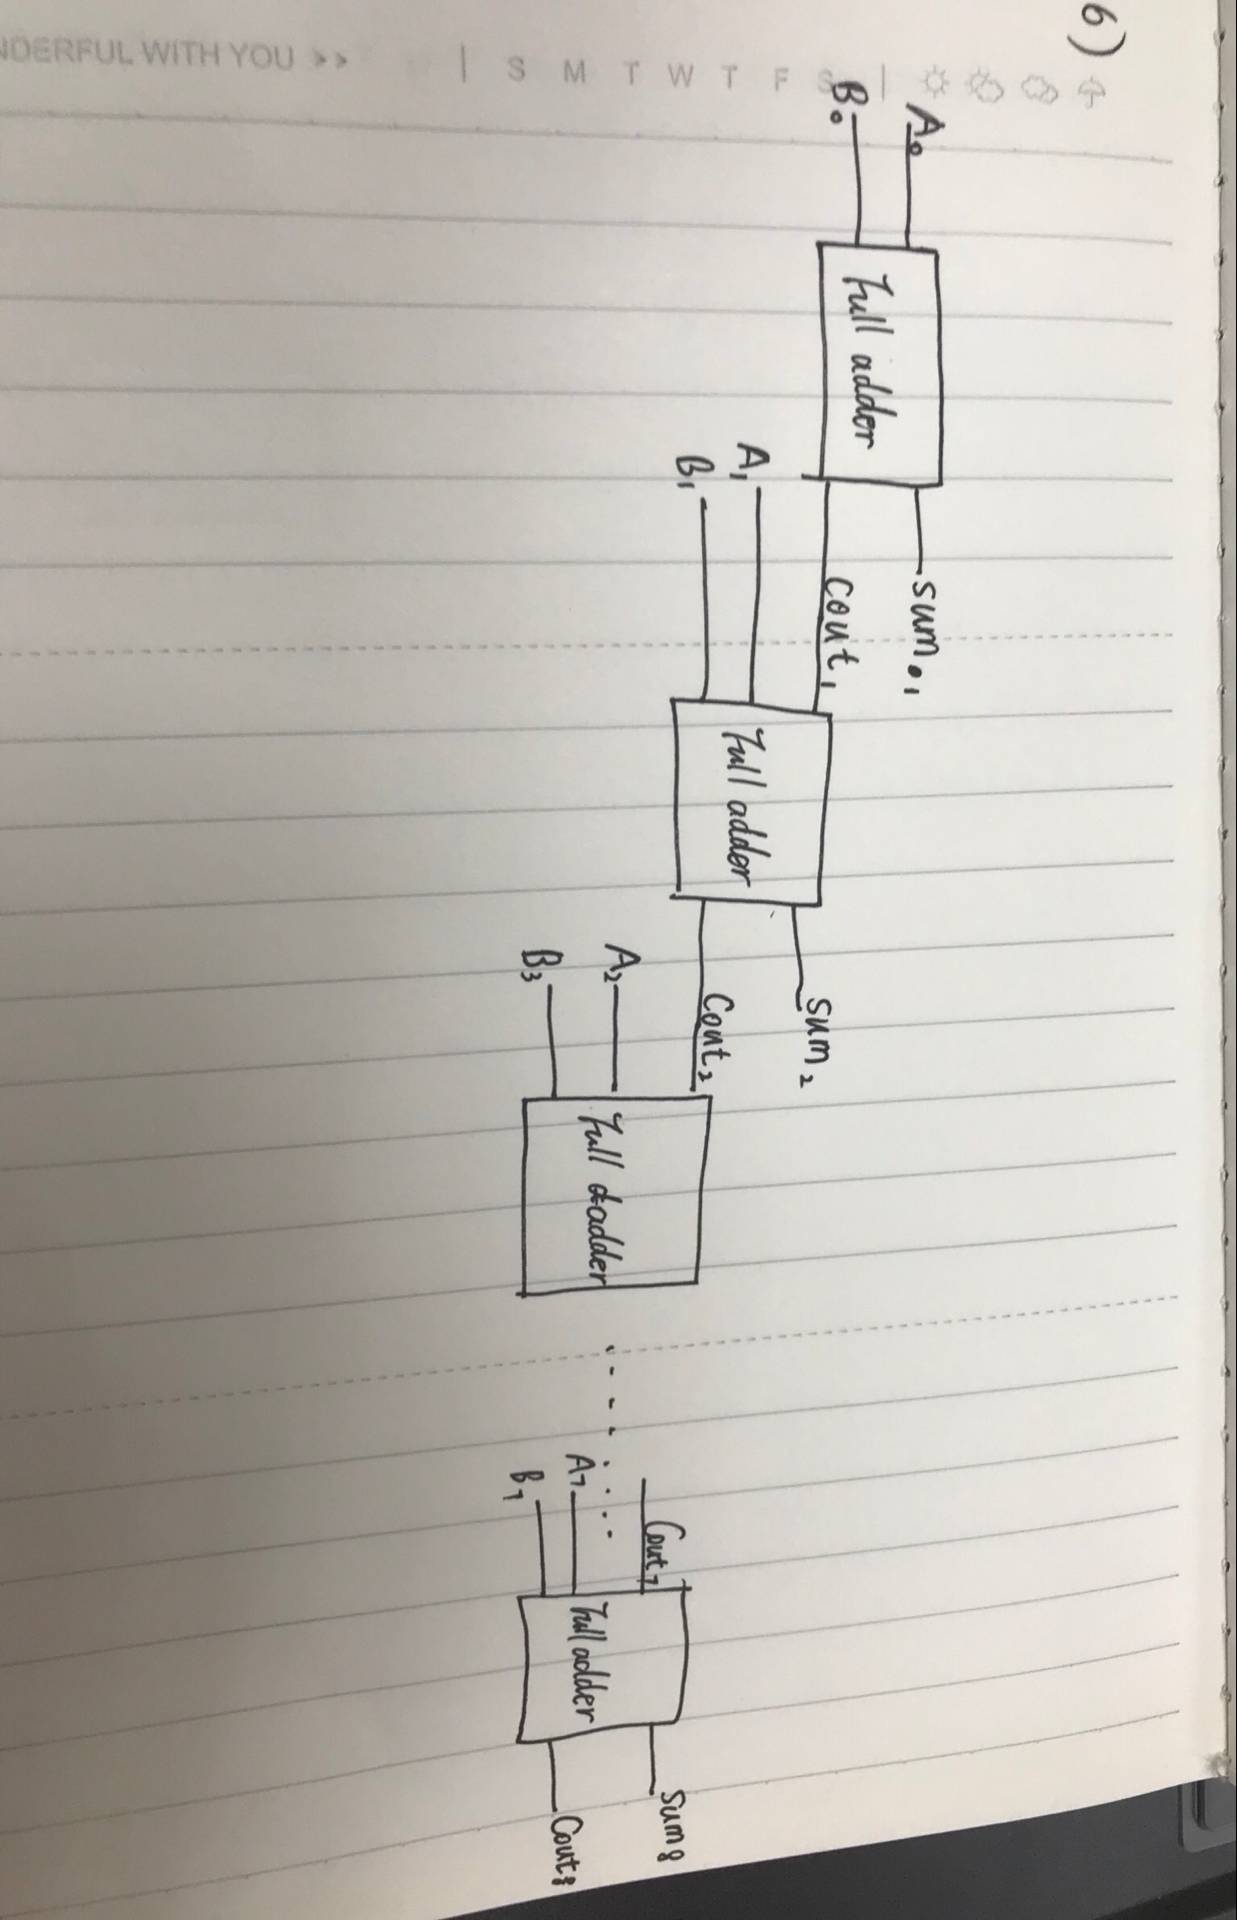 6)
NDERFUL WITH YOU >> | S M T W T F S |
A0
B0
Full adder
sum1
Cout1
A1
B1
Full adder
sum2
Cout2
A2
B3
Full adder
Cout7
A7
B7
Full adder
Sum8
Cout8